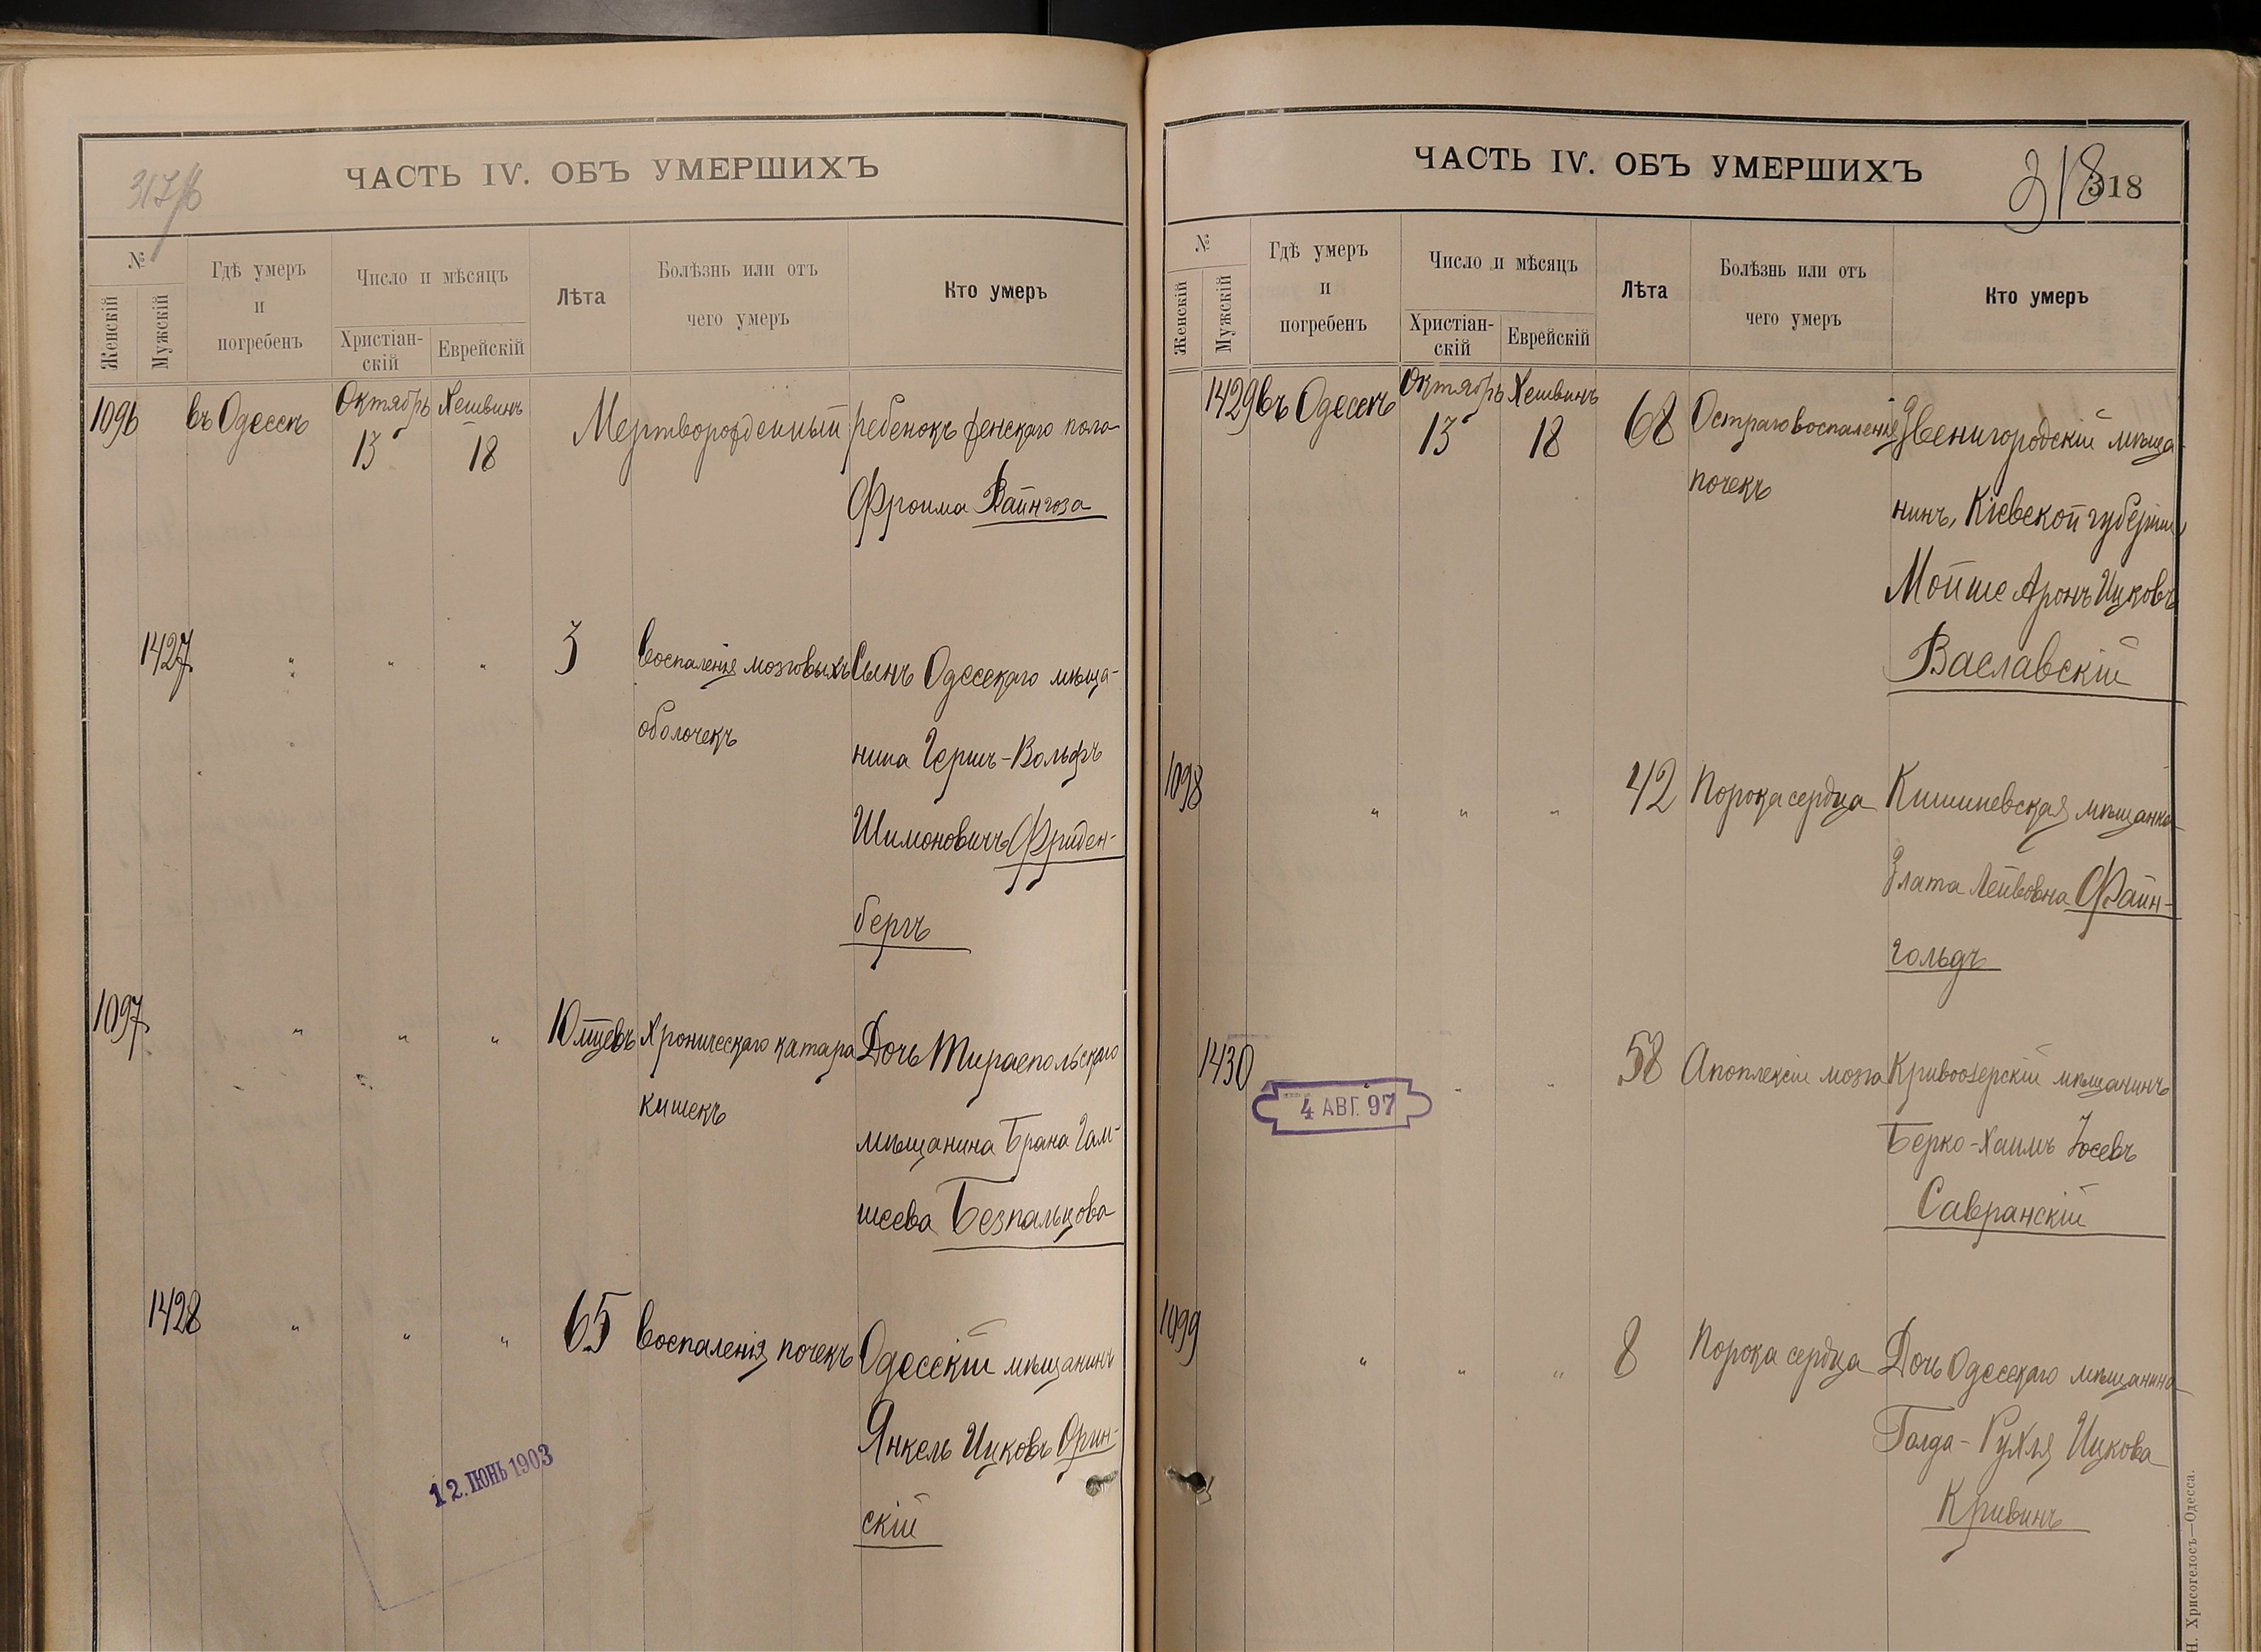 317/б
ЧАСТЬ IV. ОБЪ УМЕРШИХЪ
№
Женскій
Мужскій
Гдѣ умеръ
и
погребенъ
Число и мѣсяцъ
Христіан-
скій
Еврейскій
Лѣта
Болѣзнь или отъ
чего умеръ
Кто умеръ
1096 въ Одессѣ Октябрь Хешвинъ Мертворожденный ребенокъ женскаго пола
13 18
Фроима Вайнгоза
1427 " " " 3 Воспаленія мозговыхъ Сынъ Одесскаго мѣща-
оболочекъ нина Гершъ-Вольфъ
Шимоновичъ Фриден-
бергъ
1097 " " " 10 мцевъ Хроническаго катара Дочь Тираспольскаго
кишекъ мѣщанина Брана Гам-
шеева Безпальцова
1428 " " " 65 Воспаленія почекъ Одесскій мѣщанинъ
Янкель Ицковъ Орин-
скій
12. ІЮНЬ 1903
ЧАСТЬ IV. ОБЪ УМЕРШИХЪ
318
318
№
Женскій
Мужскій
Гдѣ умеръ
и
погребенъ
Число и мѣсяцъ
Христіан-
скій
Еврейскій
Лѣта
Болѣзнь или отъ
чего умеръ
Кто умеръ
1429 въ Одессѣ Октябрь Хешвинъ 68 Остраго воспаленія Звенигородскій мѣща-
13 18 почекъ
нинъ, Кіевской губерніи
Мойше Аронъ Ицковъ
Ваславскій
1098 " " " 42 Порока сердца Кишиневская мѣщанка
Злата Лейвовна Файн-
гольдъ
1430 " " " 58 Апоплексіи мозга Кривоозерскій мѣщанинъ
4 АВГ. 97
Берко-Хаимъ Іосевъ
Савранскій
1099 " " " 8 Порока сердца Дочь Одесскаго мѣщанина
Голда-Рухля Ицкова
Кривинъ
Н. Хрисогелосъ—Одесса.